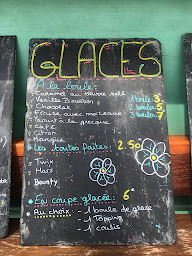 GLACES
A la boule :
- Caramel au beurre salé
- Vanille Bourbon
- Chocolat 
- Fraise avec morceaux
- Yaourt
- Café
- Citron
- Mangue
1 boule 3
2 boules 5
3 boules 7
Les toutes faites : 2.50
- Twix
- Mars
- Bounty
En coupe glacée : 6
Au choix : - 1 boule de glace
- 1 Topping
- 1 coulis